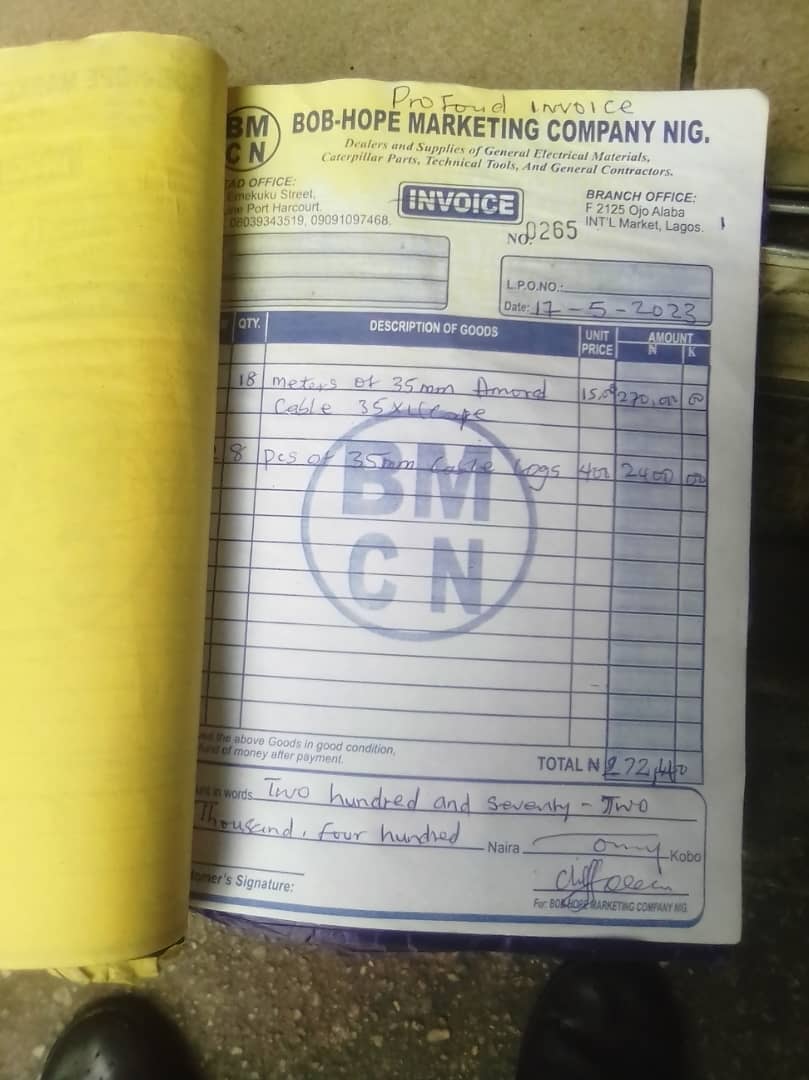 Proforid INVOICE
BM
CN
BOB-HOPE MARKETING COMPANY NIG.
Dealers and Supplies of General Electrical Materials,
Caterpillar Parts, Technical Tools, And General Contractors.
AD OFFICE:
Emekuku Street,
ne Port Harcourt.
08039343519, 09091097468.
INVOICE
NO. 0265
BRANCH OFFICE:
F 2125 Ojo Alaba
INT'L Market, Lagos.
L.P.O.NO.:
Date: 17-5-2023
QTY. DESCRIPTION OF GOODS UNIT PRICE AMOUNT
N K
18 meters of 35mm Amord 270,00
Cable
8 pcs of 35mm Cable Logs 400 2400 00
BM
CN
the above Goods in good condition,
fund of money after payment.
TOTAL N 272,40
in words Two hundred and seventy-Two
Thousand, four hundred Naira only Kobo
omer's Signature:
For: BOB-HOPE MARKETING COMPANY NIG.